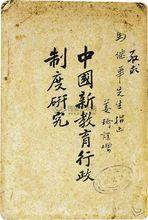 馬繼華先生指正
姜琦謹贈
中國新教育行政
制度研究